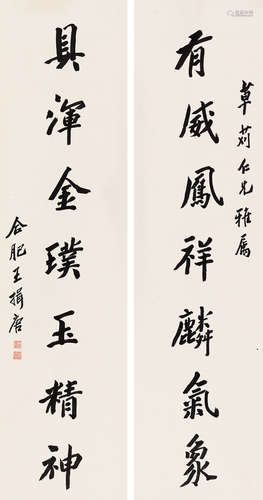 草荊仁兄雅屬
有威鳳祥麟氣象
具渾金璞玉精神
合肥王揖唐